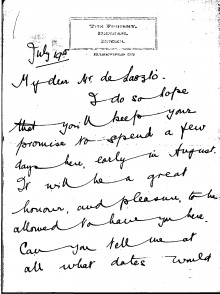 THE PRIORY,
July 19th
My dear Mr. de Laszló.
I do so hope
that you'll keep your
promise to spend a few
days here, early in August.
It will be a great
honour, and pleasure, to be
allowed to have you here.
Can you tell me at
all what dates would